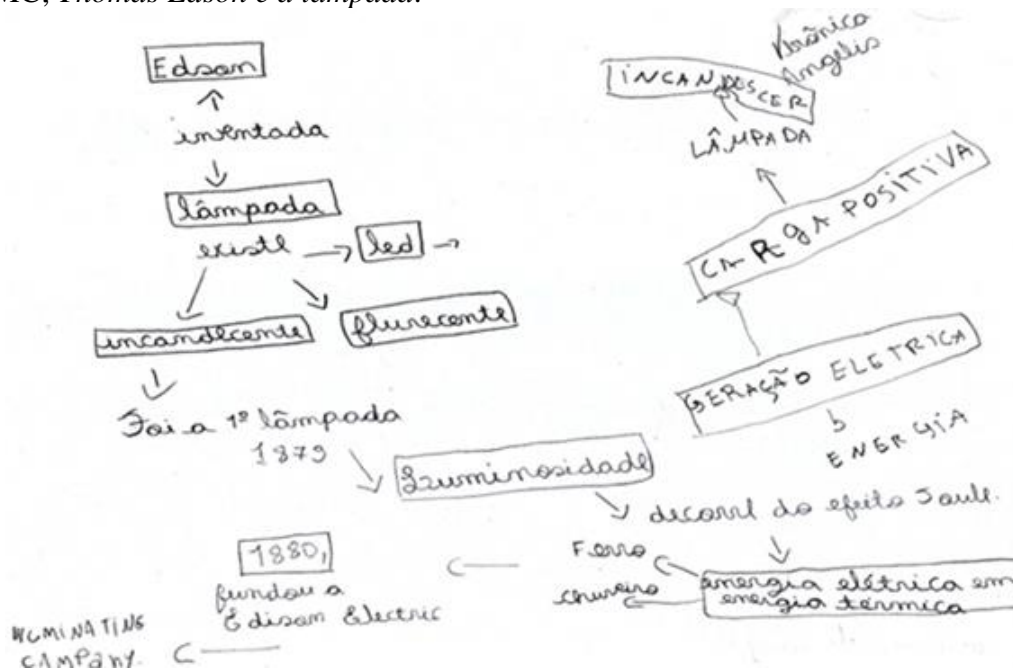 Thomas Edson e a lâmpada.
Edson
inventada
lâmpada
existe
led
incandecente
flurecente
Foi a 1ª lâmpada
1879
Luminosidade
decorre do efeito Joule.
energia elétrica em
energia térmica
Ferro
chuveiro
1880,
fundou a
Edison Electric
CAMPANY.
Verônica
Angelis
INCANDESCER
LÂMPADA
CARGA POSITIVA
GERAÇÃO ELETRICA
ENERGIA